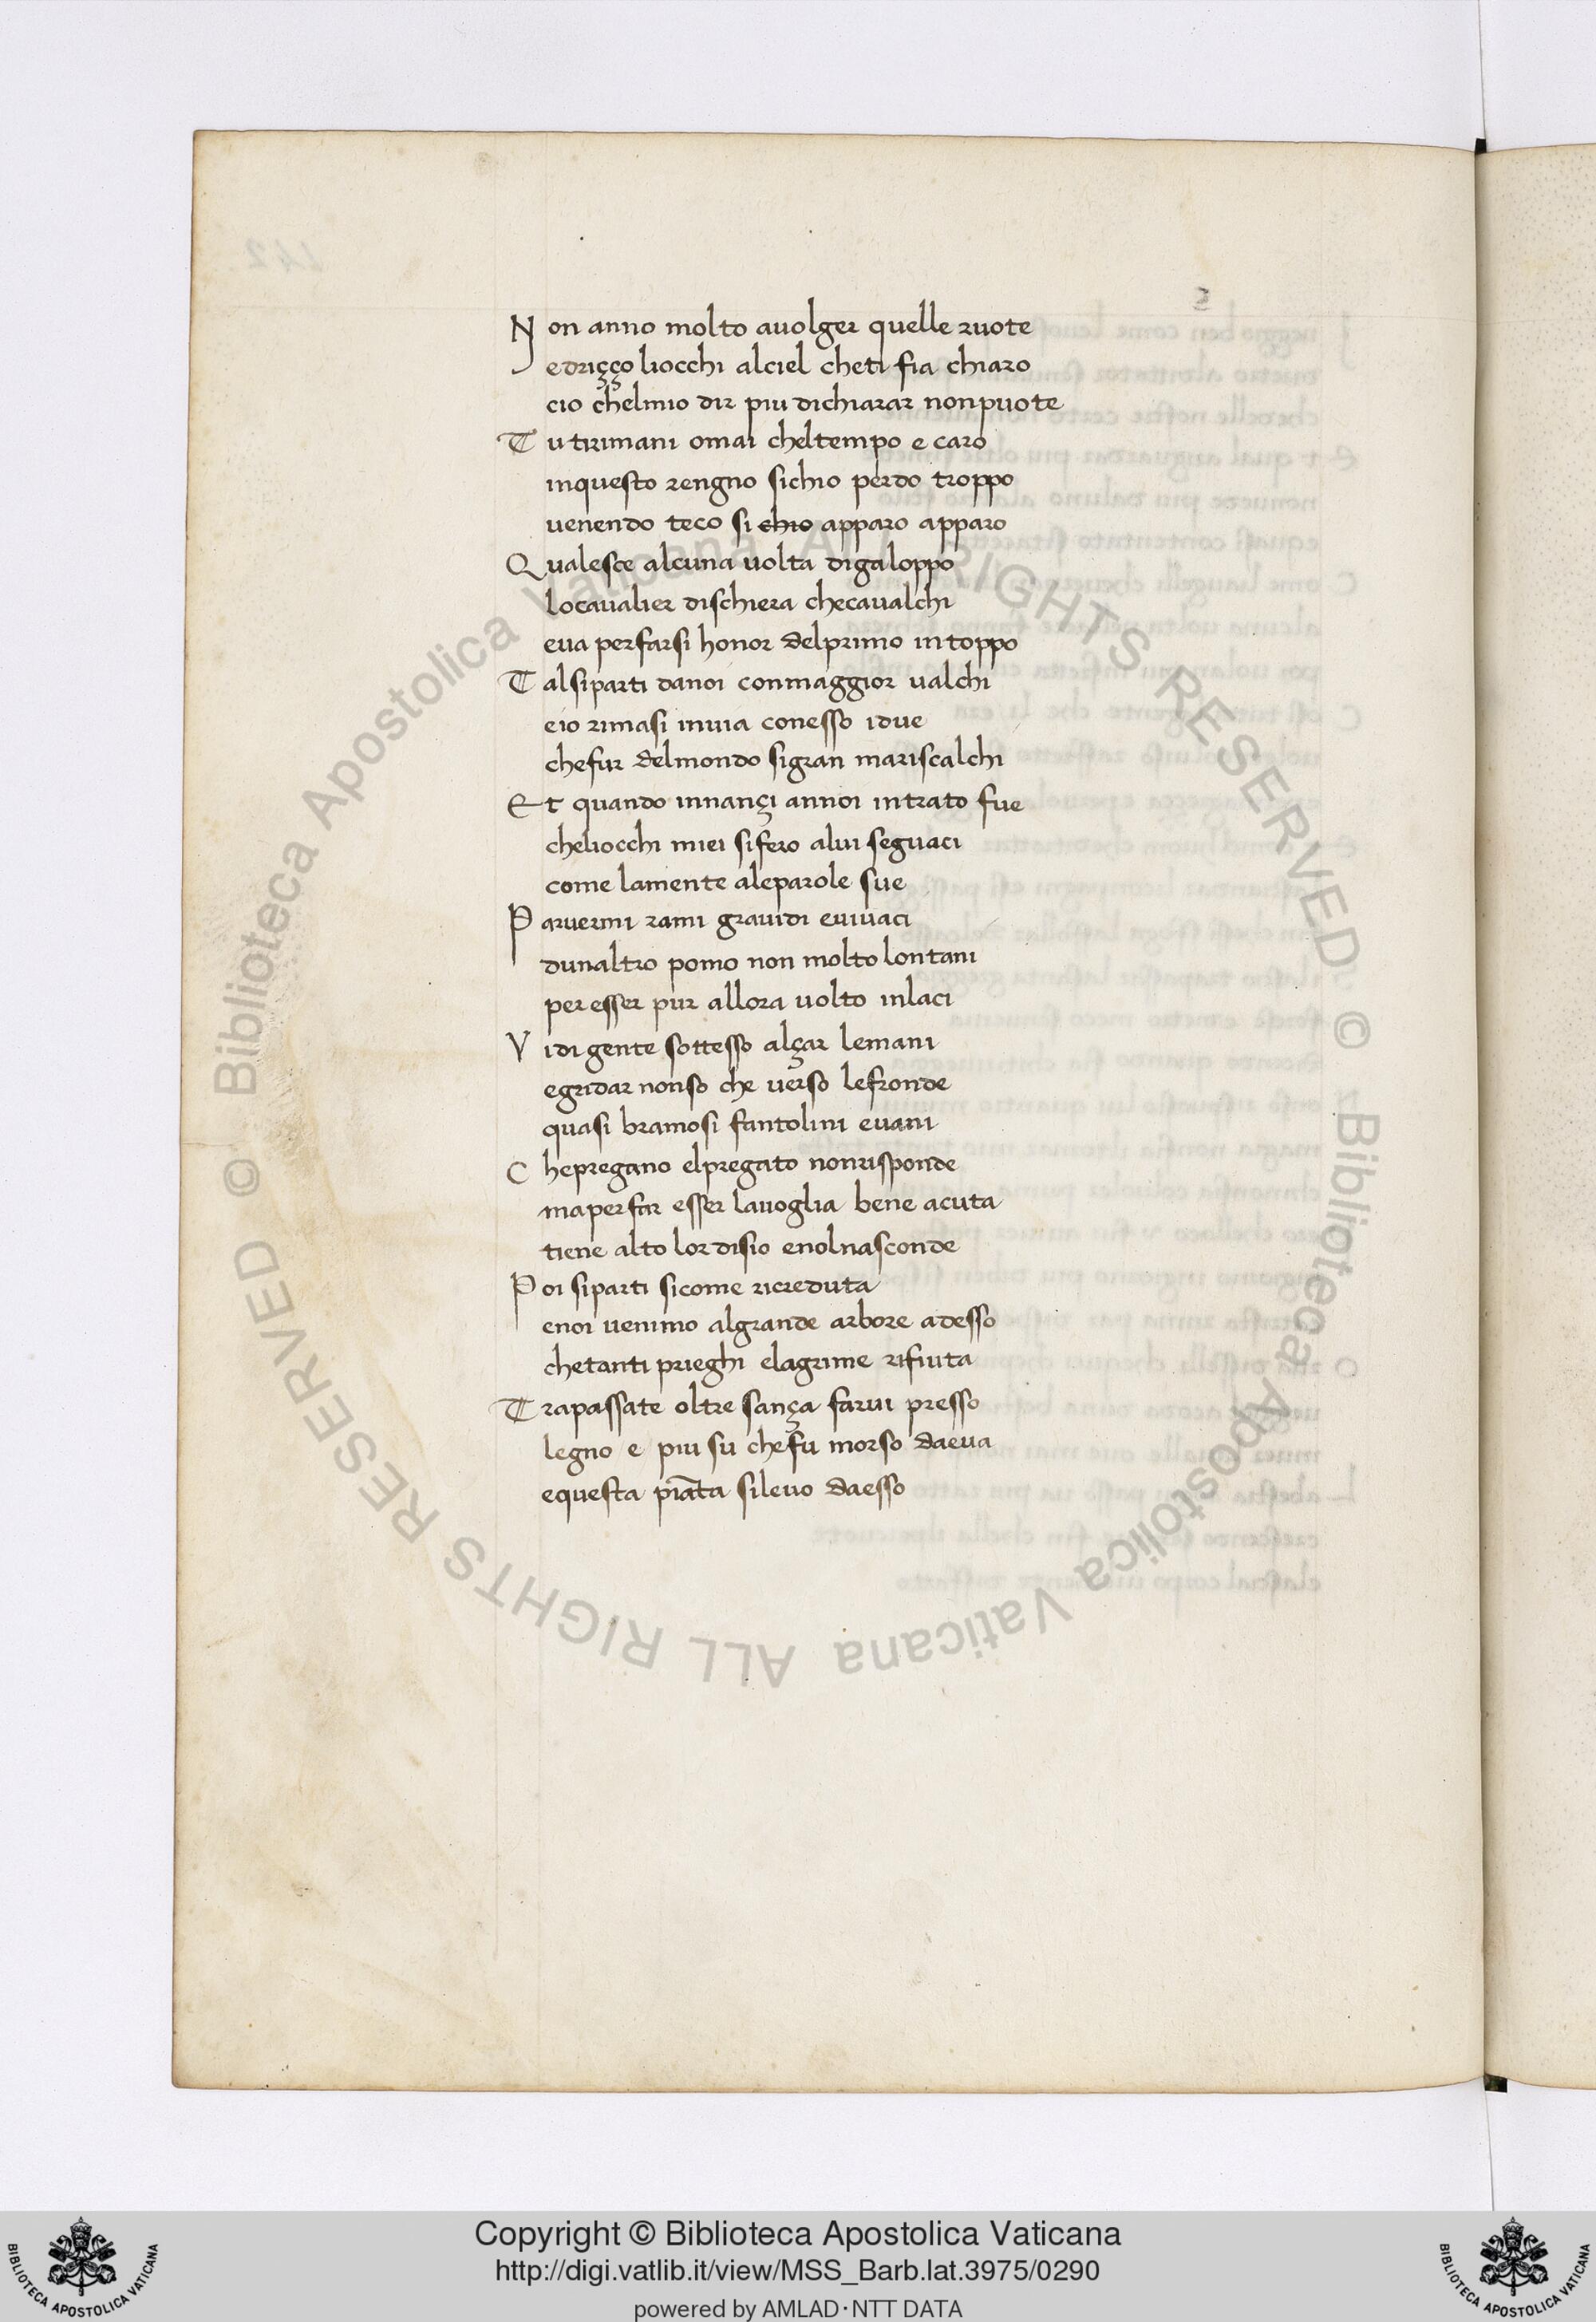 Non anno molto auolger quelle ruote
edriçço liocchi alciel cheti fia chiaro
cio chelmio dir piu dichiarar nonpuote
Tu tirimani omai cheltempo e caro
inquesto rengno sichio perdo troppo
uenendo teco si chio apparo apparo
Qualesce alcuna uolta digaloppo
locaualier dischiera checaualchi
eua perfarsi honor delprimo intoppo
Talsiparti danoi conmaggior ualchi
eio rimasi inuia conesso idue
chefur delmondo sigran mariscalchi
Et quando innançi annoi intrato fue
cheliocchi miei sifero alui seguaci
come lamente aleparole sue
Paruermi rami grauidi euiuaci
dunaltro pomo non molto lontani
per esser pur allora uolto inlaci
Vidi gente sottesso alçar lemani
egridar nonso che uerso lefronde
quasi bramosi fantolini euani
Chepregano elpregato nonrisponde
maperfar esser lauoglia bene acuta
tiene alto lor disio enolnasconde
Poi siparti sicome ricreduta
enoi uenimo algrande arbore adesso
chetanti prieghi elagrime rifiuta
Trapassate oltre sança farui presso
legno e piu su chefu morso daeua
equesta piāta sileuo daesso
© Biblioteca Apostolica Vaticana ALL RIGHTS RESERVED © Biblioteca Apostolica Vaticana ALL RIGHTS RESERVED
Copyright © Biblioteca Apostolica Vaticana
http://digi.vatlib.it/view/MSS_Barb.lat.3975/0290
powered by AMLAD·NTT DATA
BIBLIOTECA APOSTOLICA VATICANA
BIBLIOTECA APOSTOLICA VATICANA